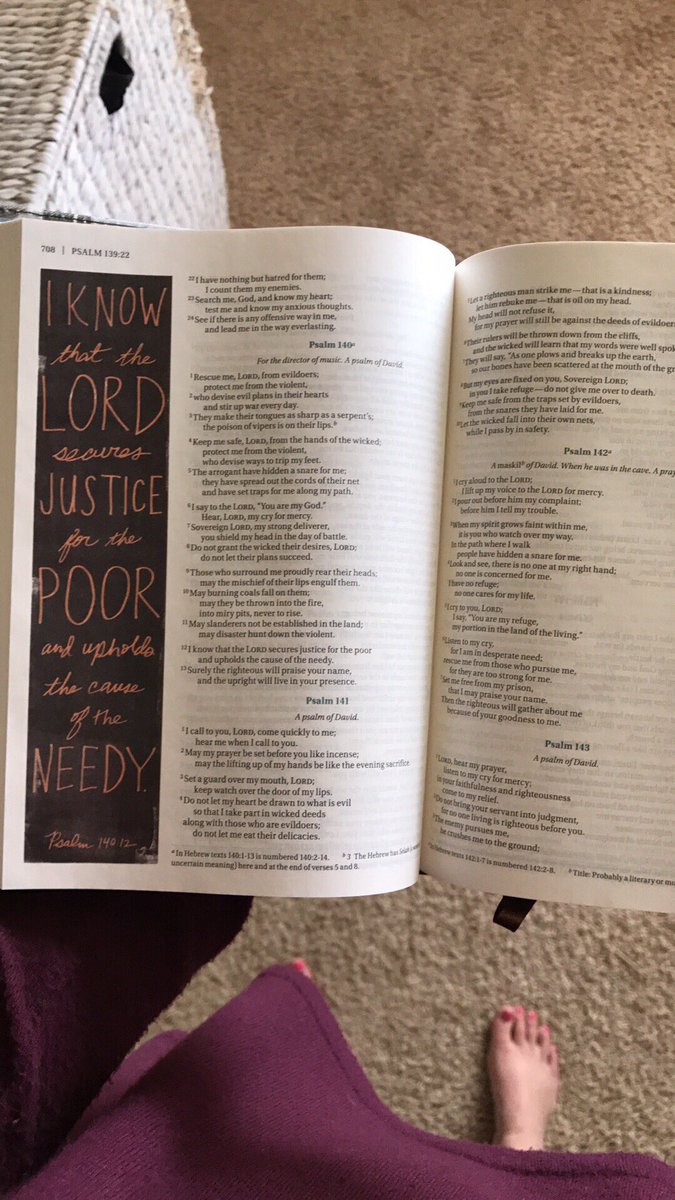 708 | PSALM 139:22
I KNOW
that the
LORD
secures
JUSTICE
for the
POOR
and upholds
the cause
of the
NEEDY.
Psalm 140:12
22 I have nothing but hatred for them;
I count them my enemies.
23 Search me, God, and know my heart;
test me and know my anxious thoughts.
24 See if there is any offensive way in me,
and lead me in the way everlasting.
Psalm 140a
For the director of music. A psalm of David.
1 Rescue me, LORD, from evildoers;
protect me from the violent,
2 who devise evil plans in their hearts
and stir up war every day.
3 They make their tongues as sharp as a serpent's;
the poison of vipers is on their lips.b
4 Keep me safe, LORD, from the hands of the wicked;
protect me from the violent,
who devise ways to trip my feet.
5 The arrogant have hidden a snare for me;
they have spread out the cords of their net
and have set traps for me along my path.
6 I say to the LORD, "You are my God."
Hear, LORD, my cry for mercy.
7 Sovereign LORD, my strong deliverer,
you shield my head in the day of battle.
8 Do not grant the wicked their desires, LORD;
do not let their plans succeed.
9 Those who surround me proudly rear their heads;
may the mischief of their lips engulf them.
10 May burning coals fall on them;
may they be thrown into the fire,
into miry pits, never to rise.
11 May slanderers not be established in the land;
may disaster hunt down the violent.
12 I know that the LORD secures justice for the poor
and upholds the cause of the needy.
13 Surely the righteous will praise your name,
and the upright will live in your presence.
Psalm 141
A psalm of David.
1 I call to you, LORD, come quickly to me;
hear me when I call to you.
2 May my prayer be set before you like incense;
may the lifting up of my hands be like the evening sacrifice.
3 Set a guard over my mouth, LORD;
keep watch over the door of my lips.
4 Do not let my heart be drawn to what is evil
so that I take part in wicked deeds
along with those who are evildoers;
do not let me eat their delicacies.
a In Hebrew texts 140:1-13 is numbered 140:2-14. b 3 The Hebrew has Selah
uncertain meaning) here and at the end of verses 5 and 8.
5 Let a righteous man strike me—that is a kindness;
let him rebuke me—that is oil on my head.
My head will not refuse it,
for my prayer will still be against the deeds of evildoers
6 Their rulers will be thrown down from the cliffs,
and the wicked will learn that my words were well spok
7 They will say, "As one plows and breaks up the earth,
so our bones have been scattered at the mouth of the gr
8 But my eyes are fixed on you, Sovereign LORD;
in you I take refuge—do not give me over to death.
9 Keep me safe from the traps set by evildoers,
from the snares they have laid for me.
10 Let the wicked fall into their own nets,
while I pass by in safety.
Psalm 142a
A maskilb of David. When he was in the cave. A pray
1 I cry aloud to the LORD;
I lift up my voice to the LORD for mercy.
2 I pour out before him my complaint;
before him I tell my trouble.
3 When my spirit grows faint within me,
it is you who watch over my way.
In the path where I walk
people have hidden a snare for me.
4 Look and see, there is no one at my right hand;
no one is concerned for me.
I have no refuge;
no one cares for my life.
5 I cry to you, LORD;
I say, "You are my refuge,
my portion in the land of the living."
6 Listen to my cry,
for I am in desperate need;
rescue me from those who pursue me,
for they are too strong for me.
7 Set me free from my prison,
that I may praise your name.
Then the righteous will gather about me
because of your goodness to me.
Psalm 143
A psalm of David.
1 LORD, hear my prayer,
listen to my cry for mercy;
in your faithfulness and righteousness
come to my relief.
2 Do not bring your servant into judgment,
for no one living is righteous before you.
3 The enemy pursues me,
he crushes me to the ground;
a In Hebrew texts 142:1-7 is numbered 142:2-8. b Title: Probably a literary or mu